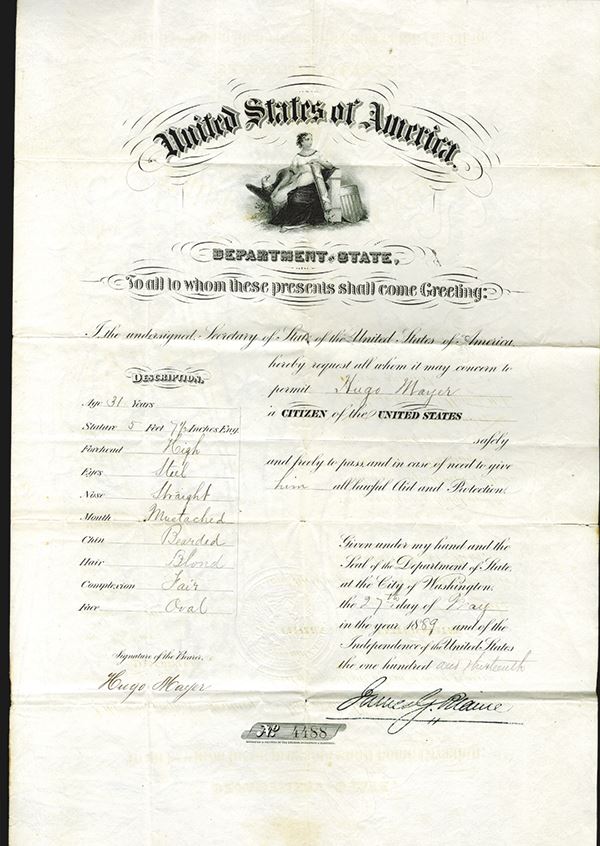 United States of America.
DEPARTMENT OF STATE,
To all to whom these presents shall come Greeting:
I the undersigned, Secretary of State of the United States of America,
hereby request all whom it may concern to
permit Hugo Mayer
a CITIZEN of the UNITED STATES
safely
and freely to pass, and in case of need to give
him all lawful Aid and Protection.
DESCRIPTION.
Age 31 Years
Stature 5 Feet 7½ Inches Eng.
Forehead High
Eyes Steel
Nose Straight
Mouth Mustached
Chin Bearded
Hair Blond
Complexion Fair
Face Oval
Signature of the Bearer.
Hugo Mayer
Given under my hand and the
Seal of the Department of State,
at the City of Washington,
the 27th day of May
in the year 1889 and of the
Independence of the United States
the one hundred and thirteenth
James G. Blaine
No 4488